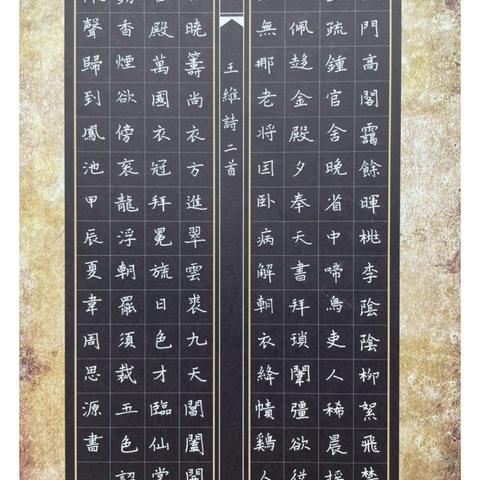 門高閣靄餘暉桃李陰陰柳絮飛禁
疏鍾官舍晚省中啼鳥吏人稀晨搖
佩趍金殿夕奉天書拜瑣闈彊欲從
無那老将因卧病解朝衣絳幘雞人
王維詩二首
曉籌尚衣方進翠雲裘九天閶闔開
殿萬國衣冠拜冕旒日色才臨仙掌
香煙欲傍袞龍浮朝罷須裁五色詔
聲歸到鳳池甲辰夏韋周思源書